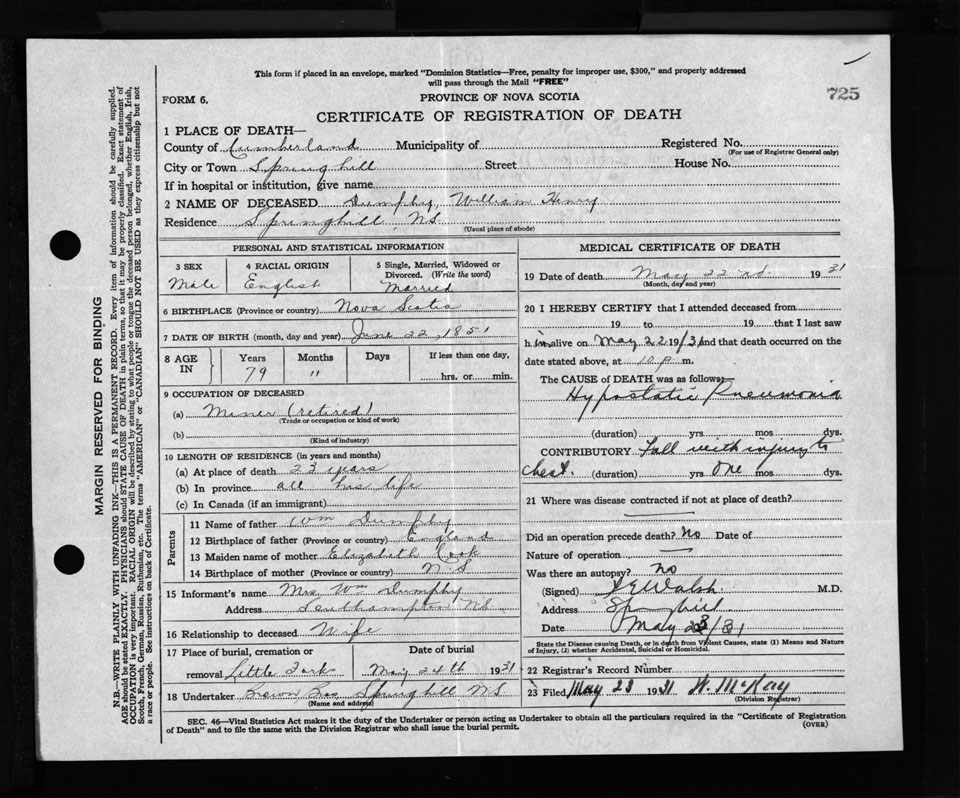 This form if placed in an envelope, marked "Dominion Statistics—Free, penalty for improper use, $300," and properly addressed
will pass through the Mail "FREE"
725
FORM 6.
PROVINCE OF NOVA SCOTIA
CERTIFICATE OF REGISTRATION OF DEATH
1 PLACE OF DEATH—
County of Cumberland Municipality of Registered No.
(For use of Registrar General only)
City or Town Springhill Street House No.
If in hospital or institution, give name
2 NAME OF DECEASED Dumphy, William Henry
Residence Springhill, NS
(Usual place of abode)
PERSONAL AND STATISTICAL INFORMATION
3 SEX 4 RACIAL ORIGIN 5 Single, Married, Widowed or
Divorced. (Write the word)
Male English Married
6 BIRTHPLACE (Province or country) Nova Scotia
7 DATE OF BIRTH (month, day and year) June 22, 1851
8 AGE IN Years Months Days If less than one day,
79 11 hrs. or min.
9 OCCUPATION OF DECEASED
(a) Miner (retired)
(Trade or occupation or kind of work)
(b)
(Kind of industry)
10 LENGTH OF RESIDENCE (in years and months)
(a) At place of death 23 years
(b) In province all his life
(c) In Canada (if an immigrant)
Parents
11 Name of father Wm Dumphy
12 Birthplace of father (Province or country) England
13 Maiden name of mother Elizabeth Cook
14 Birthplace of mother (Province or country) N.S
15 Informant's name Mrs Wm Dumphy
Address Southampton NS
16 Relationship to deceased Wife
17 Place of burial, cremation or Date of burial
removal Little Forks May 24th 1931
18 Undertaker Brown Bros Springhill NS
(Name and address)
MEDICAL CERTIFICATE OF DEATH
19 Date of death May 22nd. 1931
(Month, day and year)
20 I HEREBY CERTIFY that I attended deceased from
19 to 19 that I last saw
h im alive on May 22 19/31 and that death occurred on the
date stated above, at 10 p m.
The CAUSE of DEATH was as follows:
Hypostatic Pneumonia
(duration) yrs mos dys.
CONTRIBUTORY Fall with injury to
chest. (duration) yrs One mos dys.
21 Where was disease contracted if not at place of death?
Did an operation precede death? No Date of
Nature of operation
Was there an autopsy? No
(Signed) Walsh M.D.
Address Springhill
Date May 23/31
State the Disease causing Death, or in death from Violent Causes, state (1) Means and Nature
of Injury, (2) whether Accidental, Suicidal or Homicidal.
22 Registrar's Record Number
23 Filed May 23 1931 W. McKay
(Division Registrar)
SEC. 46—Vital Statistics Act makes it the duty of the Undertaker or person acting as Undertaker to obtain all the particulars required in the "Certificate of Registration
of Death" and to file the same with the Division Registrar who shall issue the burial permit.
(OVER)
MARGIN RESERVED FOR BINDING
N.B.—WRITE PLAINLY WITH UNFADING INK—THIS IS A PERMANENT RECORD. Every item of information should be carefully supplied.
AGE should be stated EXACTLY. PHYSICIANS should STATE CAUSE OF DEATH in plain terms, so that it may be properly classified. Exact statement of
OCCUPATION is very important. RACIAL ORIGIN will be described by stating to what people or tongue the deceased person belonged, whether English, Irish,
Scotch, French, German, Russian, Ruthenian, etc. The terms "AMERICAN" or "CANADIAN" SHOULD NOT BE USED as they express citizenship but not
a race or people. See instructions on back of Certificate.